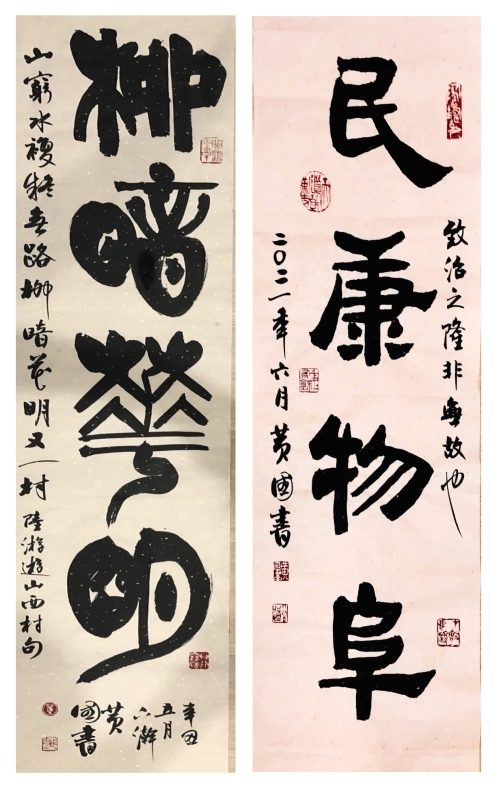 致治之隆非無故也
民康物阜
二〇二一年六月黄國書
柳暗華明
山窮水複疑無路柳暗花明又一村 陸游遊山西村句
辛丑
五月
六瀚
黄
國書